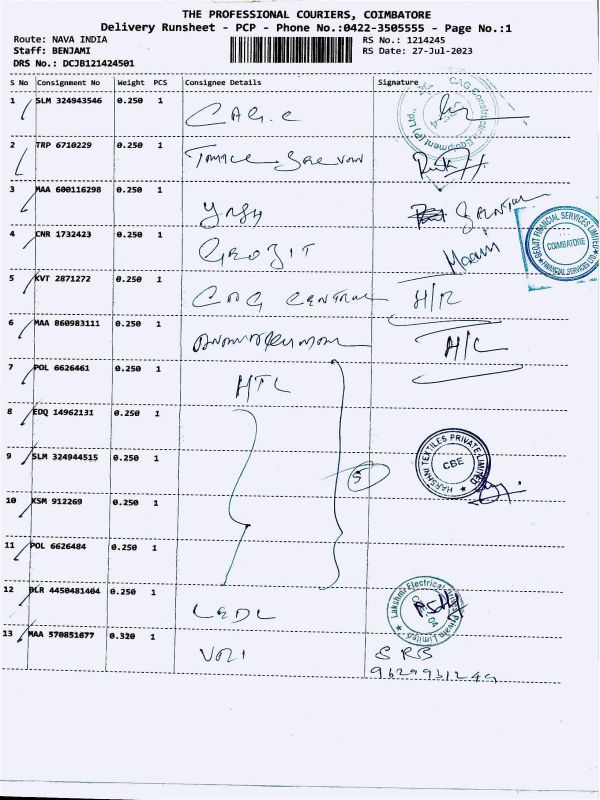 THE PROFESSIONAL COURIERS, COIMBATORE
Delivery Runsheet - PCP - Phone No.:0422-3505555 - Page No.:1
Route: NAVA INDIA RS No.: 1214245
Staff: BENJAMI RS Date: 27-Jul-2023
DRS No.: DCJB121424501
S No Consignment No Weight PCS Consignee Details Signature
1 SLM 324943546 0.250 1
CAG Construction Equipment (P) Ltd.,
2 TRP 6710229 0.250 1
3 MAA 600116298 0.250 1
4 CNR 1732423 0.250 1 GEOJIT
GEOJIT FINANCIAL SERVICES LIMITED
COIMBATORE
5 KVT 2871272 0.250 1 H/R
6 MAA 860983111 0.250 1
7 POL 6626461 0.250 1 HTL
8 EDQ 14962131 0.250 1
9 SLM 324944515 0.250 1 5
HARSHNI TEXTILES PRIVATE LIMITED
CBE
10 KSM 912269 0.250 1
11 POL 6626484 0.250 1
12 BLR 4450481404 0.250 1
Lakshmi Electrical Private Limited
13 MAA 570851677 0.320 1
9629931249